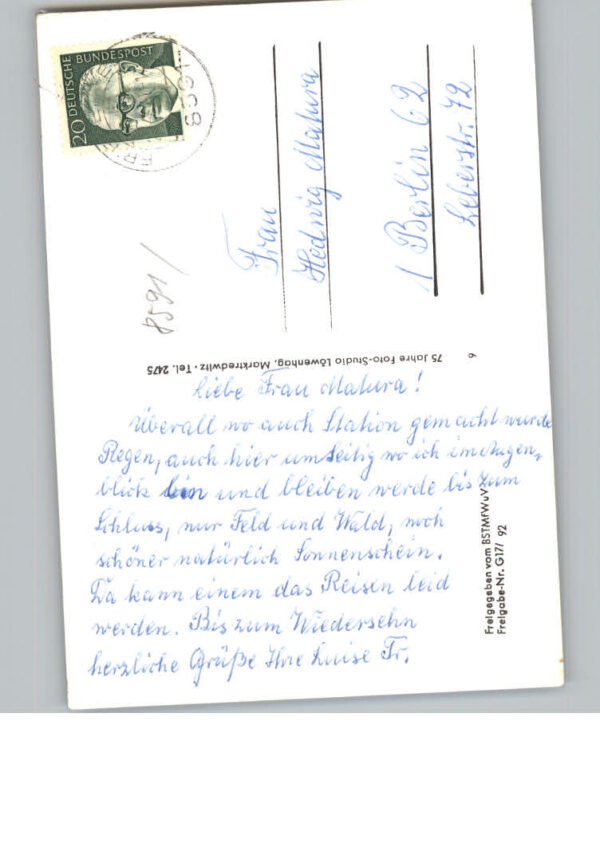 20 DEUTSCHE BUNDESPOST
8591
8591 /
Frau
Hedwig Matura
1 Berlin 62
Leberstr. 72
6
75 Jahre Foto-Studio Löwenhag, Marktredwitz · Tel. 2475
Liebe Frau Matura!
Überall wo auch Station gemacht wurde
Regen, auch hier umseitig wo ich im Augen-
blick bin und bleiben werde bis zum
Schluss, nur Feld und Wald, noch
schöner natürlich Sonnenschein.
Da kann einem das Reisen leid
werden. Bis zum Wiedersehn
herzliche Grüße Ihre Luise Fr.
Freigegeben vom BSTMfWuV
Freigabe-Nr. G17/ 92